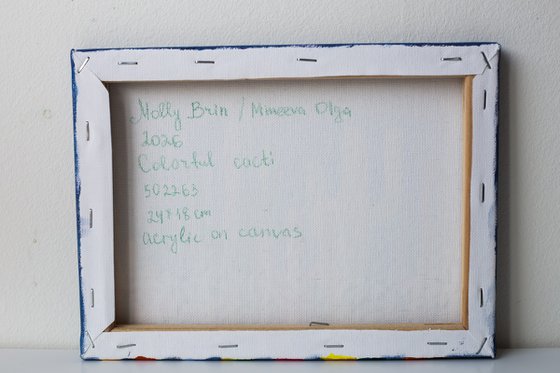 Molly Brin / Mineeva Olga
2026
Colorful cacti
502263
24×18 cm
acrylic on canvas